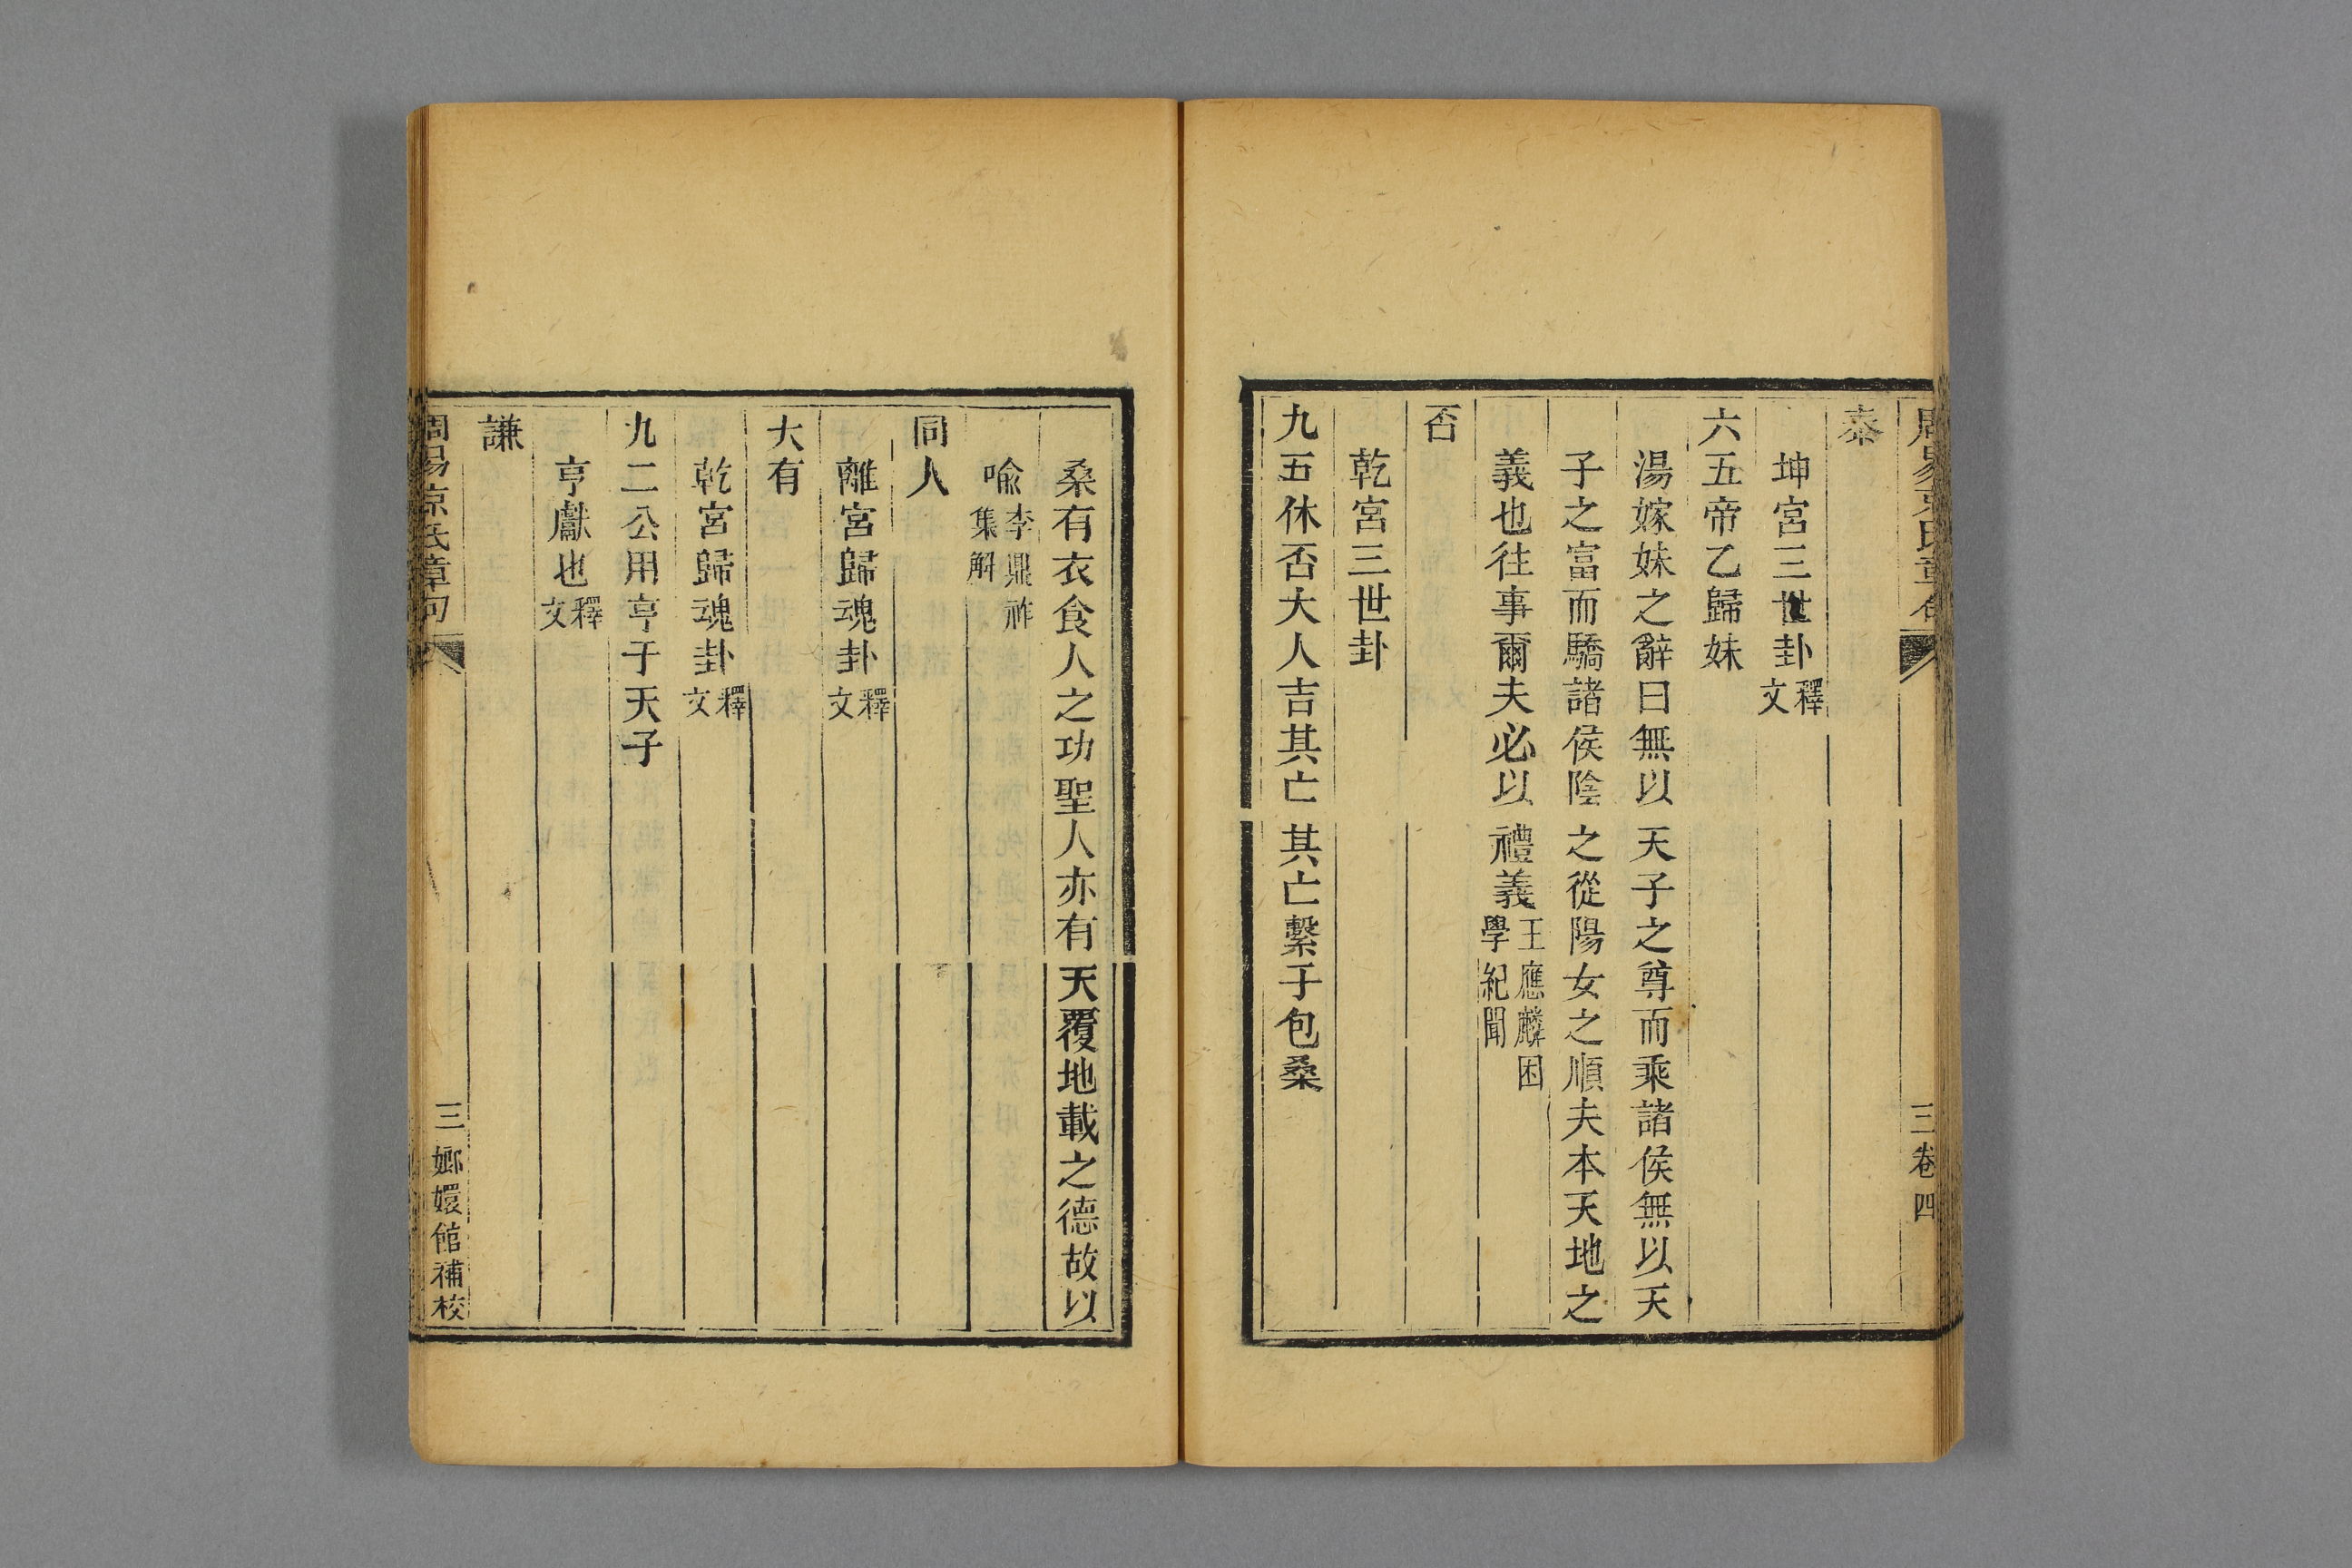 周易京氏章句 三 卷四
泰
坤宮三世卦釋文
六五帝乙歸妹
湯嫁妹之辭曰無以天子之尊而乘諸侯無以天
子之富而驕諸侯陰之從陽女之順夫本天地之
義也往事爾夫必以禮義王應麟困學紀聞
否
乾宮三世卦
九五休否大人吉其亡其亡繫于包桑
桑有衣食人之功聖人亦有天覆地載之德故以
喻李鼎祚集解
同人
離宮歸魂卦釋文
大有
乾宮歸魂卦釋文
九二公用亨于天子
亨獻也釋文
謙
周易京氏章句 三 嫏嬛館補校